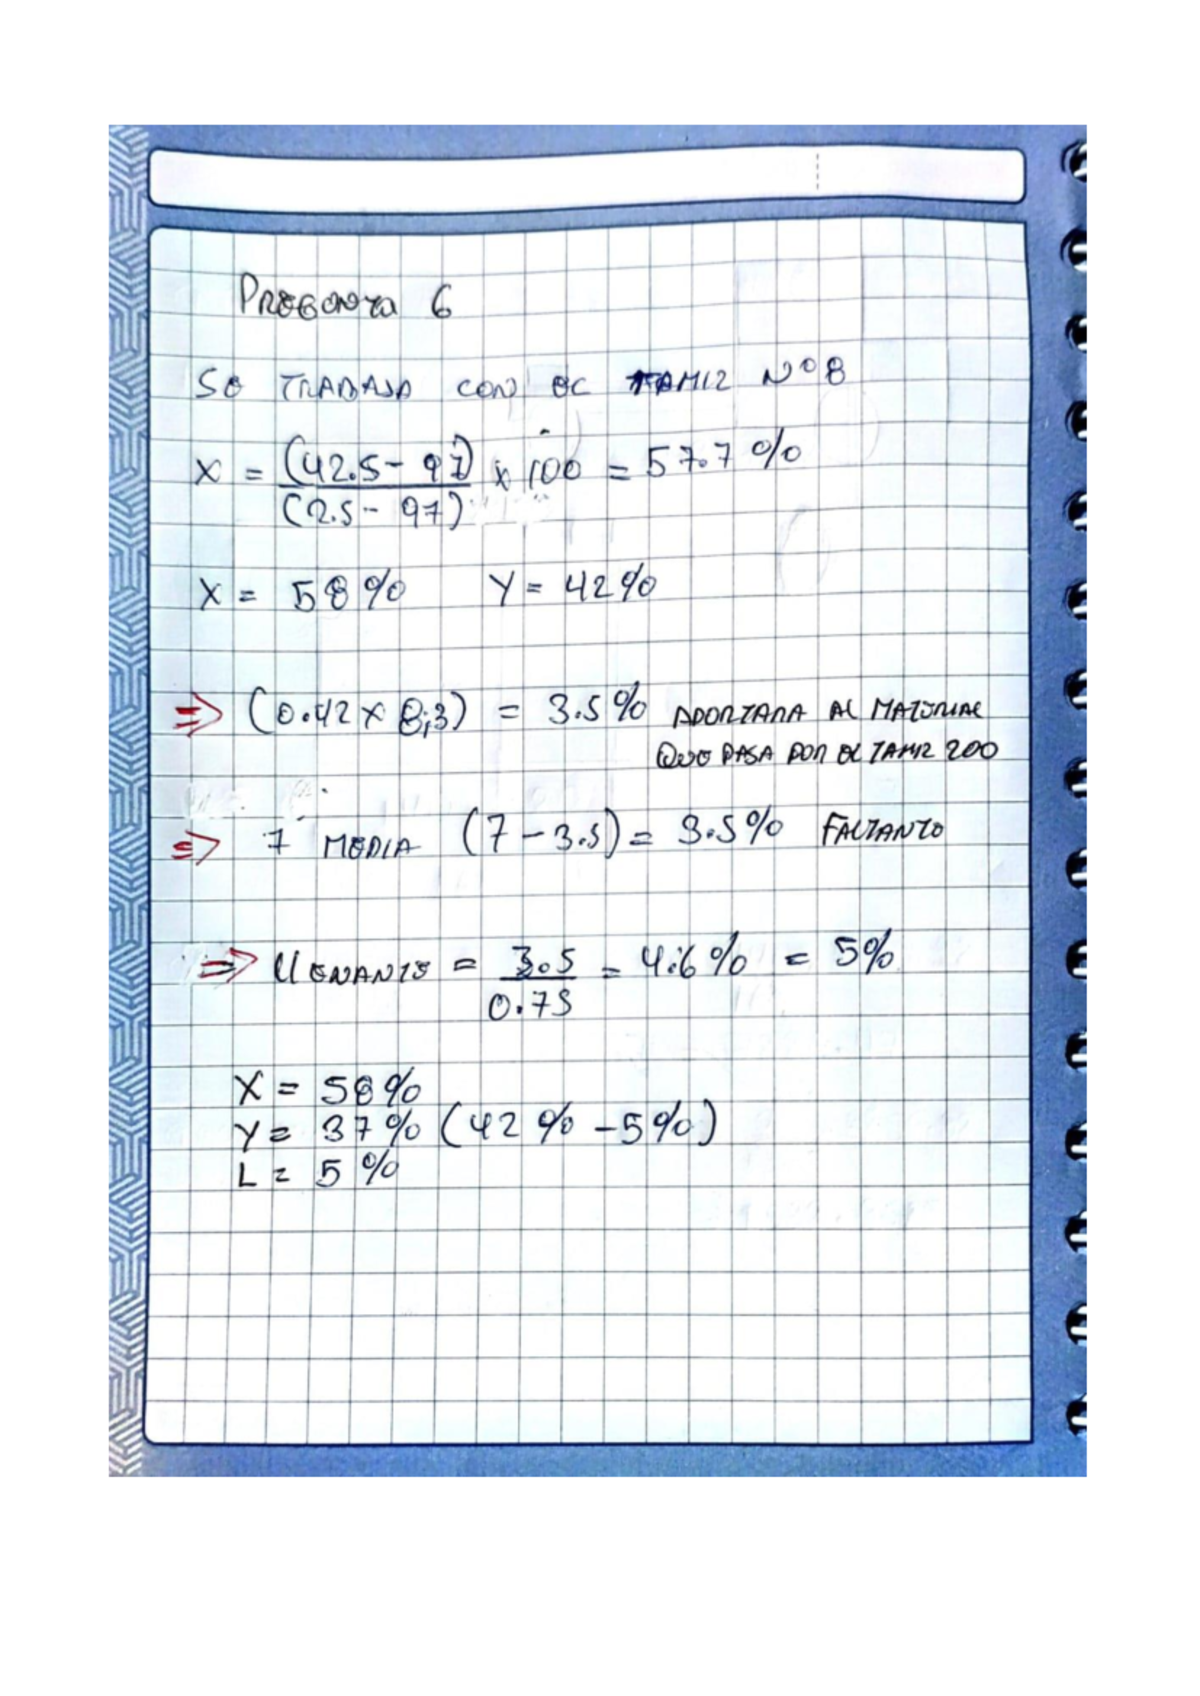 PREGUNTA 6
SE TRABAJA CON EL TAMIZ Nº 8
X = (42.5 - 97) x 100 = 57.7 %
(2.5 - 97)
X = 58 % Y = 42 %
⇒ (0.42 x 8,3) = 3.5 % APORTARA AL MATERIAL
QUE PASA POR EL TAMIZ 200
⇒ 7 MEDIA (7 - 3.5) = 3.5 % FALTANTE
⇒ LLENANTE = 3.5 = 4.6 % = 5 %
0.75
X = 58 %
Y = 37 % (42 % - 5 %)
L = 5 %